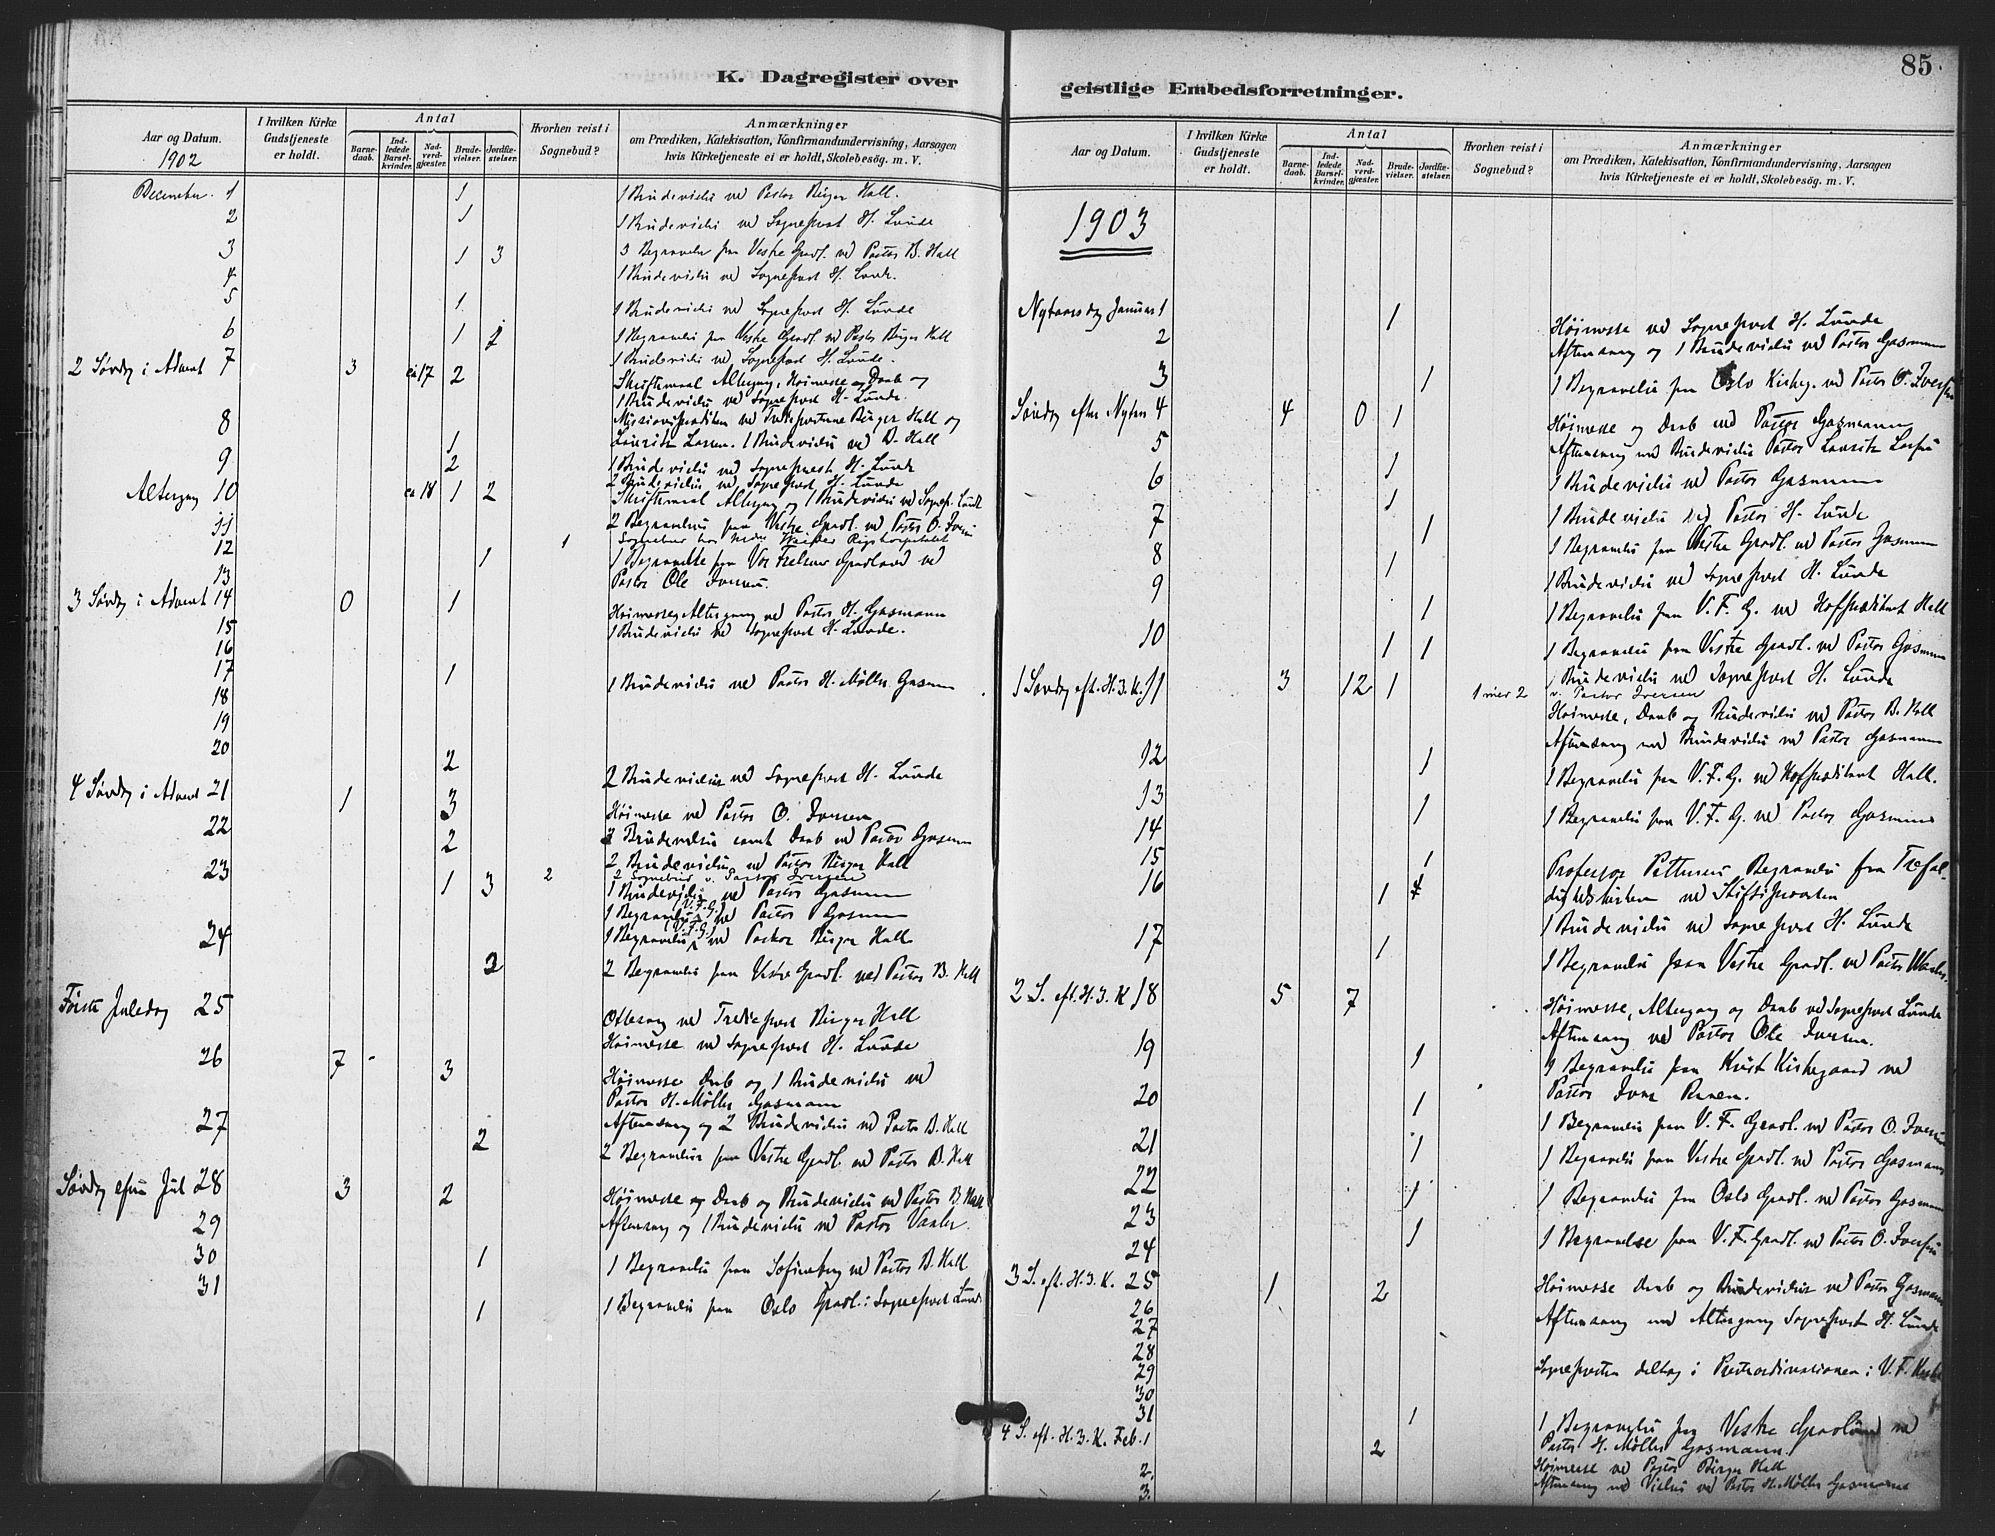 85.
K. Dagregister over
geistlige Embedsforretninger.
Aar og Datum.
1902
I hvilken Kirke Gudstjeneste er holdt.
Antal
Barnedaab.
Indledede Barselkvinder.
Nadverdgjæster.
Brudevielser.
Jordfæstelser.
Hvorhen reist i Sognebud?
Anmærkninger
om Prædiken, Katekisation, Konfirmandundervisning, Aarsagen
hvis Kirketjeneste ei er holdt, Skolebesøg. m. V.
December. 1 1 1 Brudevielse ved Pastor Birger Hall.
2 1 1 Brudevielse ved Sogneprest H. Lunde
3 1 3 3 Begravelser fra Vestre Gravl. ved Pastor B. Hall
4 1 Brudevielse ved Sogneprest H. Lunde.
5 1 1 Brudevielse ved Sogneprest H. Lunde
6 1 1 1 Begravelse fra Vestre Gravl. ved Pastor Birger Hall
1 Brudevielse ved Sogneprest H. Lunde.
2 Søndag i Advent 7 3 ca 17 2 Skriftemaal Altergang, Høimesse og Daab og
1 Brudevielse ved Sogneprest H. Lunde.
8 Missionsprædiken ved Tredieprestene Birger Hall og
Lauritz Larsen. 1 Brudevielse ved B. Hall
9 1 1 Brudevielse ved Sogneprest H. Lunde
2 2 Brudevielser ved Sogneprest H. Lunde
Altergang 10 ca 18 1 2 Skriftemaal Altergang og 1 Brudevielse ved Sognepr. Lunde
11 2 Begravelser fra Vestre Gravl. ved Pastor O. Iversen
12 1 Sognebud hos Rigshospitalet
1 1 Begravelse fra Vor Frelsers Gravlund ved
13 Pastor Ole Iversen.
3 Søndag i Advent 14 0 1 Høimesse Altergang ved Pastor H. Gasmann
15 1 Brudevielse ved Sogneprest H. Lunde.
16
17 1 1 Brudevielse ved Pastor H. Møller Gasmann
18
19
20 2 2 Brudevielser ved Sogneprest H. Lunde
4 Søndag i Advent 21 1 3 Høimesse ved Pastor O. Iversen
3 Brudevielse samt Daab ved Pastor Gasmann
22 2 2 Brudevielser ved Pastor Birger Hall
2 Sognebud v. Pastor Iversen
23 1 3 2 1 Brudevielse ved Pastor Gasmann
1 Begravelse (V.F.G.) ved Pastor Gasmann
1 Begravelse (V.F.G.) ved Pastor Birger Hall
24 2 2 Begravelse fra Vestre Gravl. ved Pastor B. Hall
Første Juledag 25 Ottesang ved Tredieprest Birger Hall
Høimesse ved Sogneprest H. Lunde
26 7 3 Høimesse Daab og 1 Brudevielse ved
Pastor H. Møller Gasmann
Aftensang og 2 Brudevielser ved Pastor B. Hall
27 2 2 Begravelser fra Vestre Gravl. ved Pastor B. Hall
Søndag efter Jul 28 3 2 Høimesse og Daab og Brudevielse ved Pastor B. Hall
Aftensang og 1 Brudevielse ved Pastor
29
30 1 1 Begravelse fra Sofienberg ved Pastor B. Hall
31 1 1 Begravelse fra Oslo Gravl.: Sogneprest Lunde
Aar og Datum.
I hvilken Kirke Gudstjeneste er holdt.
Antal
Barnedaab.
Indledede Barselkvinder.
Nadverdgjæster.
Brudevielser.
Jordfæstelser.
Hvorhen reist i Sognebud?
Anmærkninger
om Prædiken, Katekisation, Konfirmandundervisning, Aarsagen
hvis Kirketjeneste ei er holdt, Skolebesøg. m. V.
1903
Nytaarsdag Januar 1 1 Høimesse ved Sogneprest H. Lunde
2 Aftensang og 1 Brudevielse ved Pastor Gasmann
3 1 1 Begravelse fra Oslo Kirkeg. ved Pastor O. Iversen
Søndag efter Nytaar 4 4 0 1 Høimesse og Daab ved Pastor Gasmann
5 Aftensang med Brudevielse Pastor Lauritz Larsen
6 1 1 Brudevielse ved Pastor Gasmann
1 1 Brudevielse ved Pastor H. Lunde
7 1 1 Begravelse fra Vestre Gravl. ved Pastor Gasmann
8 1 1 Brudevielse ved Sogneprest H. Lunde
9 1 1 Begravelse fra V. F. G. ved Hofprædikant Hall
10 1 1 1 Begravelse fra Vestre Gravl. ved Pastor Gasmann
1 Brudevielse ved Sogneprest H. Lunde
1 Søndag eft. H. 3. K. 11 3 12 1 2 v. Pastor Iversen
Høimesse, Daab og Brudevielse ved Pastor B. Hall
Aftensang med Brudevielse ved Pastor Gasmann
12 1 1 Begravelse fra V. F. G. ved Hofprædikant Hall.
13 1 1 Begravelse fra V. F. G. ved Pastor Gasmann
14
15 1 Professor Petersens Begravelse fra Trefol-
16 1 dighedskirken ved Stiftsprovsten
1 Brudevielse ved Sogneprest H. Lunde
17 1 1 Begravelse fra Vestre Gravl. ved Pastor
2 S. eft. H. 3. K 18 5 7 Høimesse, Altergang og Daab ved Sogneprest Lunde
Aftensang ved Pastor Ole Iversen.
19 1 1 Begravelse fra Krist Kirkegaard ved
Pastor
20 1 1 Begravelse fra V. F. Gravl. ved Pastor O. Iversen
21 1 1 Begravelse fra Vestre Gravl. ved Pastor Gasmann
22 1 1 Begravelse fra Oslo Gravl. ved Pastor Gasmann
23 1 1 Begravelse fra V. F. Gravl. ved Pastor O. Iversen
24
3 S. eft. H. 3. K. 25 1 2 Høimesse Daab og Brudevielser ved Pastor Gasmann
26 Aftensang med Altergang Sogneprest H. Lunde
27
28
29 Sognepresten deltog i Presteordinationen i V. F. Kirke
30
31 1 1 Begravelse fra Vestre Gravlund ved
Pastor H. Møller Gasmann.
4 S. eft. H. 3. K. Feb. 1 2 Høimesse ved Pastor Birger Hall
2. Aftensang med Vielse ved Pastor H. Møller Gasmann
3.